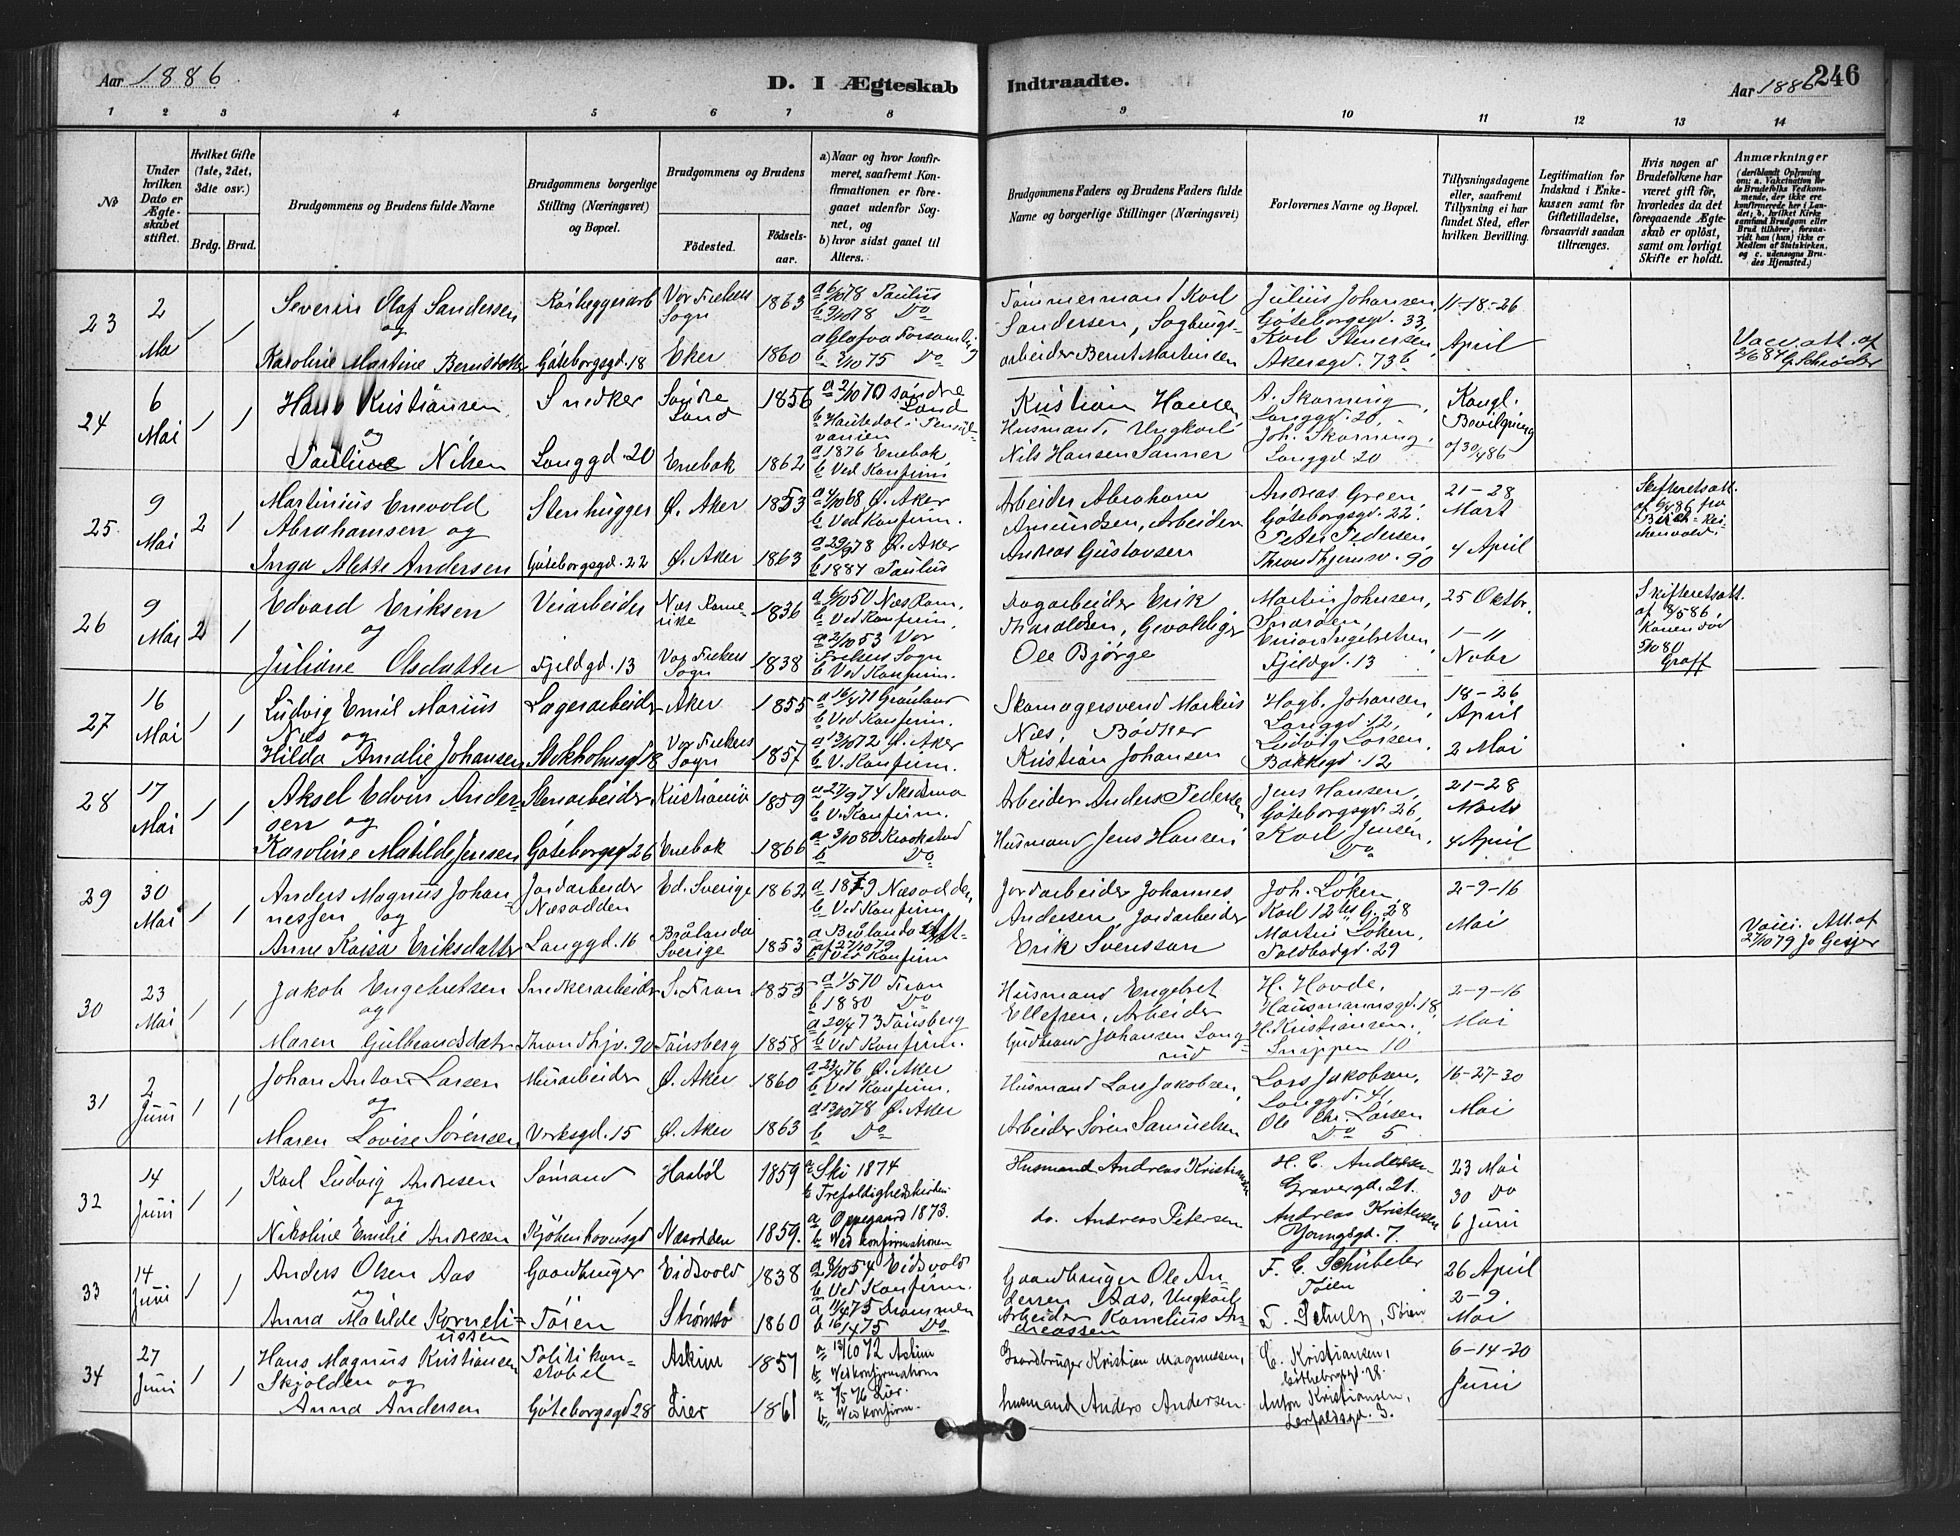 Aar 1886
D. I Ægteskab
Indtraadte.
Aar 1886
246
1 2 3 4 5 6 7 8 9 10 11 12 13 14
No
Under hvilken Dato er Ægteskabet stiftet.
Hvilket Gifte (1ste, 2det, 3die osv.)
Brdg. Brud.
Brudgommens og Brudens fulde Navne
Brudgommens borgerlige Stilling (Næringsvei) og Bopæl.
Brudgommens og Brudens
Födested.
Födselsaar.
a) Naar og hvor konfirmeret, saafremt Konfirmationen er foregaaet udenfor Sognet, og
b) hvor sidst gaaet til Alters.
Brudgommens Faders og Brudens Faders fulde Navne og borgerlige Stillinger (Næringsvei)
Forlovernes Navne og Bopæl.
Tillysningsdagene eller, saafremt Tillysning ei har fundet Sted, efter hvilken Bevilling.
Legitimation for Indskud i Enkekassen samt for Giftetilladelse, forsaavidt saadan tiltrænges.
Hvis nogen af Brudefolkene har været gift för, hvorledes da det foregaaende Ægteskab er oplöst, samt om lovligt Skifte er holdt.
Anmærkninger
(deriblandt Oplysning om: a. Vaccination for de Brudefolks Vedkommende, der ikke ere konfirmerede her i Landet; b. hvilket Kirkesamfund Brudgom eller Brud tilhörer, forsaavidt han (hun) ikke er Medlem af Statskirken, og c. udensogns Brudes Hjemsted.)
23
2 Mai
1 1
Severin Olaf Sandersen
og
Karoline Martine Berntsdatter
Göteborgsgd. 18
Vor Frelsers Sogn 1863
Eker 1860
a 6/10 78 Paulus
b 5/10 78 Do
b 3/10 75 Do
Tömmermand Karl Sandersen, Sagbrugsarbeider Bernt Martinsen
Julius Johansen, Göteborgsgd. 33,
Karl Stenersen, Akersgd. 73 b
11-18-26 April
Vacc. att. af 2/6 84 G. Schröder
24
6 Mai
1 1
Hans Kristiansen
og
Pauline Nilsen
Snedker
Langgd. 20
Söndre Land 1856
Enebak 1862
a 2/10 70 Söndre Land
a 1876 Enebak
b Ved Konfirm.
Kristian Hansen Husmand, Ungkarl
Nils Hansen Sanner
A. Skarning, Langgd. 20,
Joh. Skarning, Langgd. 20
Kongl. Bevilgning af 30/4 86
25
9 Mai
2 1
Martinius Enevold Abrahamsen og
Inga Alette Andersen
Stenhugger
Göteborgsgd. 22
Ø. Aker 1853
Ø. Aker 1863
a 4/10 68 Ø. Aker
b Ved Konfirm.
a 29/9 78 Ø. Aker
b 1884 Paulus
Arbeider Abraham Amundsen, Arbeider Andreas Gustavsen
Andreas Green, Göteborgsgd. 22,
Peter Pedersen, Throndhjemsv. 90
21-28 Mart
4 April
Skifteretsatt. af 9/4 86 fra Birch-Reichenwald.
26
9 Mai
2 1
Edvard Eriksen
og
Juliane Olsdatter
Veiarbeider
Fjeldgd. 13
Næs Romerike 1836
Vor Frelsers Sogn 1838
a 6/10 50 Næs Rom.
b Ved Konfirm.
a 2/10 53 Vor Frelsers Sogn
b Ved Konfirm.
Dagarbeider Erik Tharaldsen, Gevaldiger Ole Bjørge
Martin Johnsen,
Einar Ingebretsen Fjeldgd. 13
25 Oktbr.
1-11 Nobr
Skifteretsatt. af 8/5 86 Konen död 5/10 80 Graff
27
16 Mai
1 1
Ludvig Emil Marius Næs og
Hilda Amalie Johansen
Lagerarbeider
Stokholmsgd 18
Aker 1855
Vor Frelsers Sogn 1857
a 16/4 71 Grönland
b Ved Konfirm.
a 13/10 72 Ø. Aker
b V. Konfirm.
Skomagersvend Markus Næs, Bødker Kristian Johansen
Hagb. Johansen, Langgd. 12,
Ludvig Larsen, Bakkegd. 12
18-26 April
2 Mai
28
17 Mai
1 1
Aksel Edvin Andersen og
Karoline Matilde Jensen
Stenarbeider
Göteborgsgd 26
Kristiania 1859
Enebak 1866
a 27/9 74 Skedsmo
b V. Konfirm.
a 3/10 80 Kraakstad
b Do
Arbeider Anders Pedersen
Husmand Jens Hansen
Jens Hansen, Göteborgsgd. 26,
Karl Jensen, Do
21-28 Marts
4 April
29
30 Mai
1 1
Anders Magnus Johannessen og
Anne Kaisa Eriksdatter
Jordarbeider Næsodden
Langgd. 16
Ed. Sverige 1862
Brålanda Sverige 1853
a 1879 Næsodden
b Ved Konfirm.
a Brålanda Att. af 27/10 79
b Ved Konfirm
Jordarbeider Johannes Andersen, Jordarbeider Erik Svensson
Joh. Løken, Karl 12tes G. 28
Martin Løken, Toldbodgd. 29
2-9-16 Mai
Vacc. Att. af 27/10 79 Jo Geijer
30
23 Mai
1 1
Jakob Engebretsen
og
Maren Gulbrandsdatr
Snedkerarbeider
Throndhjv. 90
S. Fron 1853
Tönsberg 1858
a 1/5 70 Fron
b 1880 Do
a 20/4 73 Tönsberg
b Ved Konfirm.
Husmand Engebret Ellefsen, Arbeider Gudbrand Johansen Langrud
H. Hovde, Hausmannsgd. 18,
H. Kristiansen, Snippen 10
2-9-16 Mai
31
2 Juni
1 1
Johan Anton Larsen
og
Maren Lovise Sörensen
Murarbeider
Verksgd. 15
Ø. Aker 1860
Ø. Aker 1863
a 23/4 76 Ø. Aker
b Ved Konfirm.
a 13/10 78 Ø. Aker
b Do
Husmand Lars Jakobsen,
Arbeider Sören Samuelsen
Lars Jakobsen, Langgd. 41,
Ole Chr. Larsen Do 5
16-27-30 Mai
32
14 Juni
1 1
Karl Ludvig Andresen
og
Nikoline Emilie Andresen
Sømand
Kjöbenhavnsgd
Haabøl 1859
Næsodden 1859.
a Ski 1874
b Trefoldighedskirken
a Oppegaard 1873.
b Ved konfirmationen
Husmand Andreas Kristiansen
do. Andreas Petersen
H. C. Andersen Gravergd. 21.
Andreas Kristensen Youngsgd. 7.
23 Mai
30 Do
6 Juni
33
14 Juni
1 1
Anders Olsen Aas
og
Anna Matilde Korneliussen
Gaardbruger
Töien
Eidsvold 1838
Strömsö 1860
a 8/10 54 Eidsvold
b Ved Konfirm.
a 11/4 75 Drammen
b 16/4 75 Do
Gaardbruger Ole Andersen Aas, Ungkarl
Arbeider Kornelius Andreassen
F. C. Schübeler Töien
T. Schulz, Töien
26 April
2-9 Mai
34
27 Juni
1 1
Hans Magnus Kristiansen Skjolden og
Anna Andersen
Politikonstabel
Göteborgsgd 28
Askim 1857
Lier 1861
a 13/10 72 Askim
b Ved konfirmationen
a 7/5 76 Lier.
b Ved konfirm.
Gaardbruger Kristian Magnussen,
husmand Anders Andersen.
C. Kristiansen, Götheborggd. 28.
Anton Kristiansen, Lerfaldsgd. 3.
6-14-20 Juni